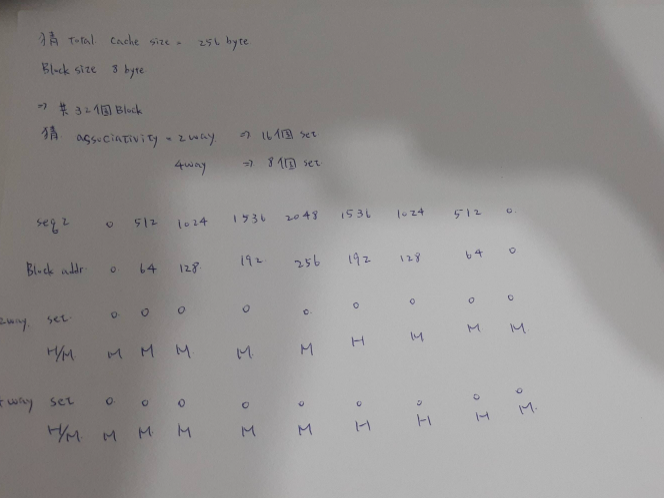 猜 Total cache size = 256 byte
Block size 8 byte
⇒ 共32個Block
猜 associativity = 2way ⇒ 16個 set
4way ⇒ 8個 set
seq2 0 512 1024 1536 2048 1536 1024 512 0
Block addr 0 64 128 192 256 192 128 64 0
2way set 0 0 0 0 0 0 0 0 0
H/M M M M M M H M M M
way set 0 0 0 0 0 0 0 0 0
H/M M M M M M H H H M